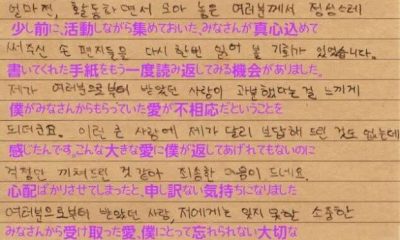 얼마전, 활동하면서 모아 놓은 여러분께서 정성스레
少し前に、活動しながら集めておいた、みなさんが真心込めて
써주신 손 편지들을 다시 한번 읽어 볼 기회가 있었습니다.
書いてくれた手紙をもう一度読み返してみる機会がありました。
제가 여러분으로부터 받았던 사랑이 과분했다는 걸 느끼게
僕がみなさんからもらっていた愛が不相応だということを
되더군요. 이런 큰 사랑에 제가 달리 보답해 드린 것도 없는데
感じたんです。こんな大きな愛に僕が返してあげれてもないのに
걱정만 끼쳐드린 것 같아 죄송한 마음이 드네요.
心配ばかりさせてしまったと、申し訳ない気持ちになりました
여러분으로부터 받았던 사랑, 저에게는 잊지 못할 소중한
みなさんから受け取った愛、僕にとって忘れられない大切な